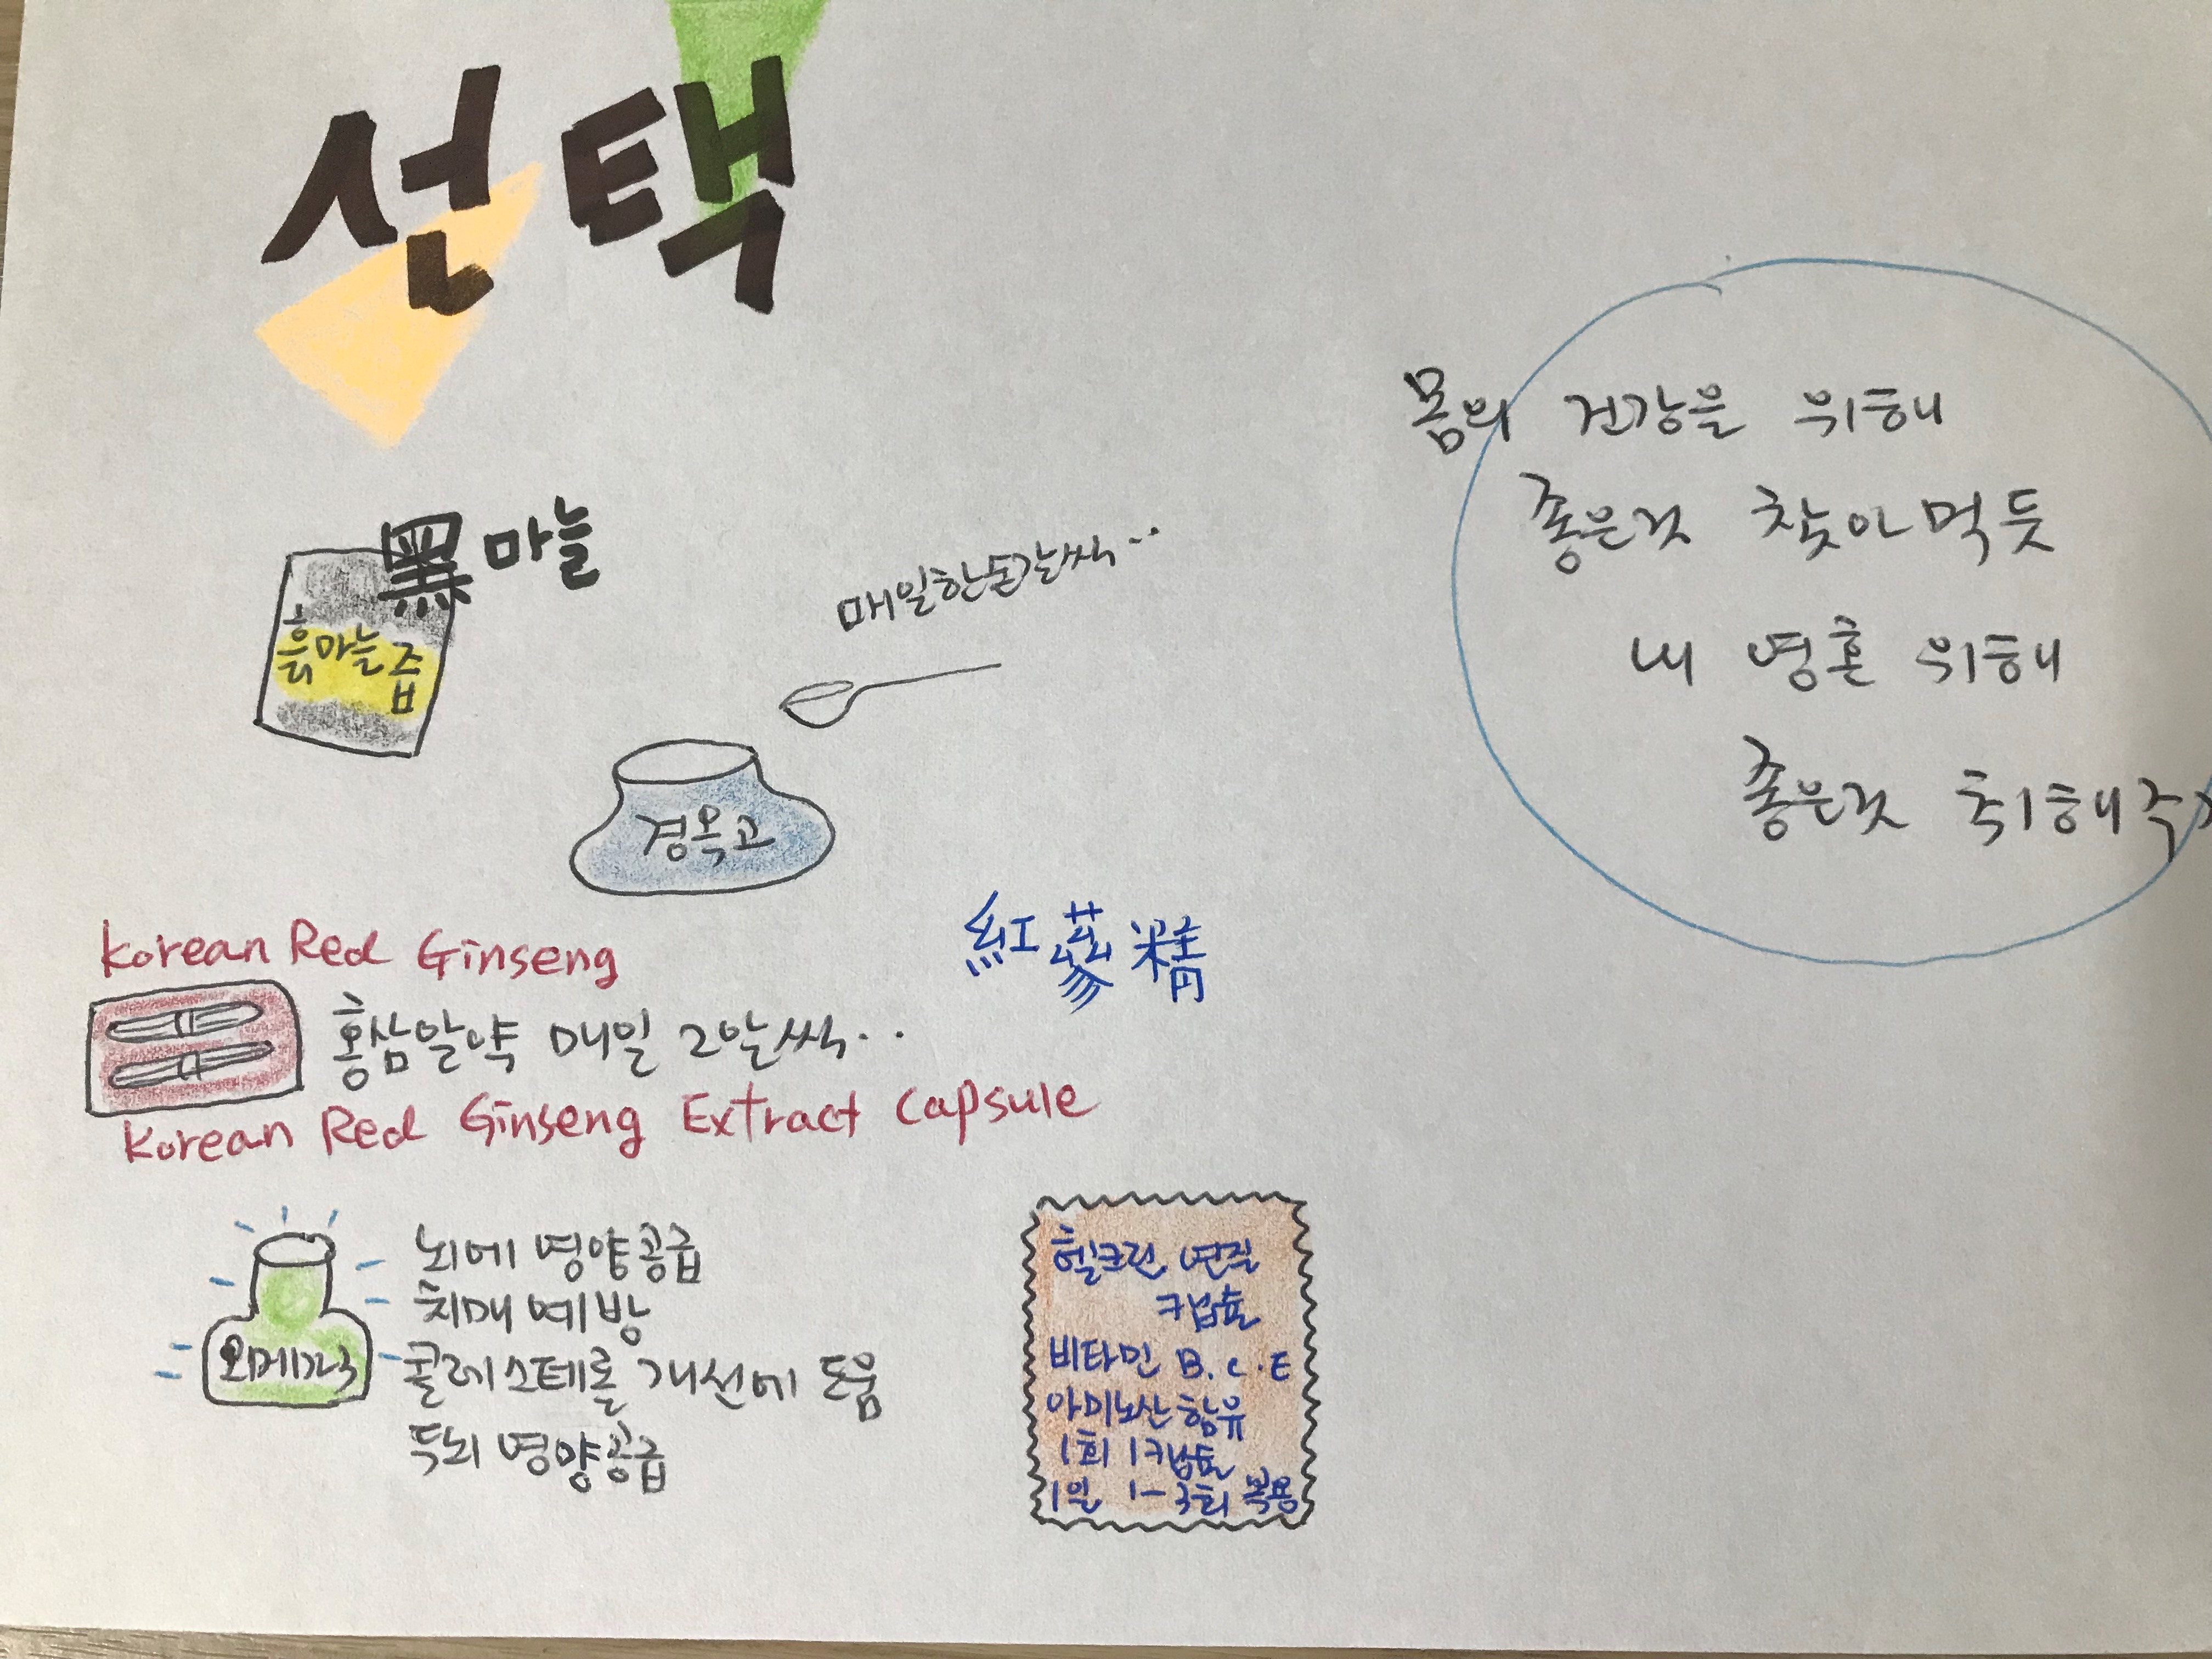 선택
몸의 건강을 위해
좋은것 찾아먹듯
내 영혼 위해
좋은것 취해주자
黑마늘
흙마늘즙
매일한숟갈씩..
경옥고
紅蔘精
Korean Red Ginseng
홍삼알약 매일 2알씩..
Korean Red Ginseng Extract Capsule
뇌에 영양공급
치매 예방
오메가3
콜레스테롤 개선에 도움
두뇌 영양공급
헬크린 연질
캡슐
비타민 B.C.E
아미노산 함유
1회 1캡슐
1일 1-3회 복용